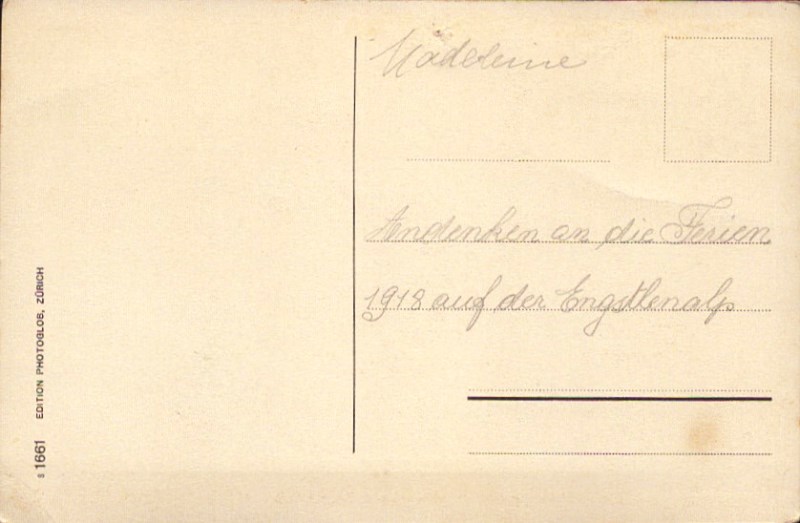 Madeleine
Andenken an die Ferien
1918 auf der Engstlenalp
s 1661 EDITION PHOTOGLOB, ZÜRICH